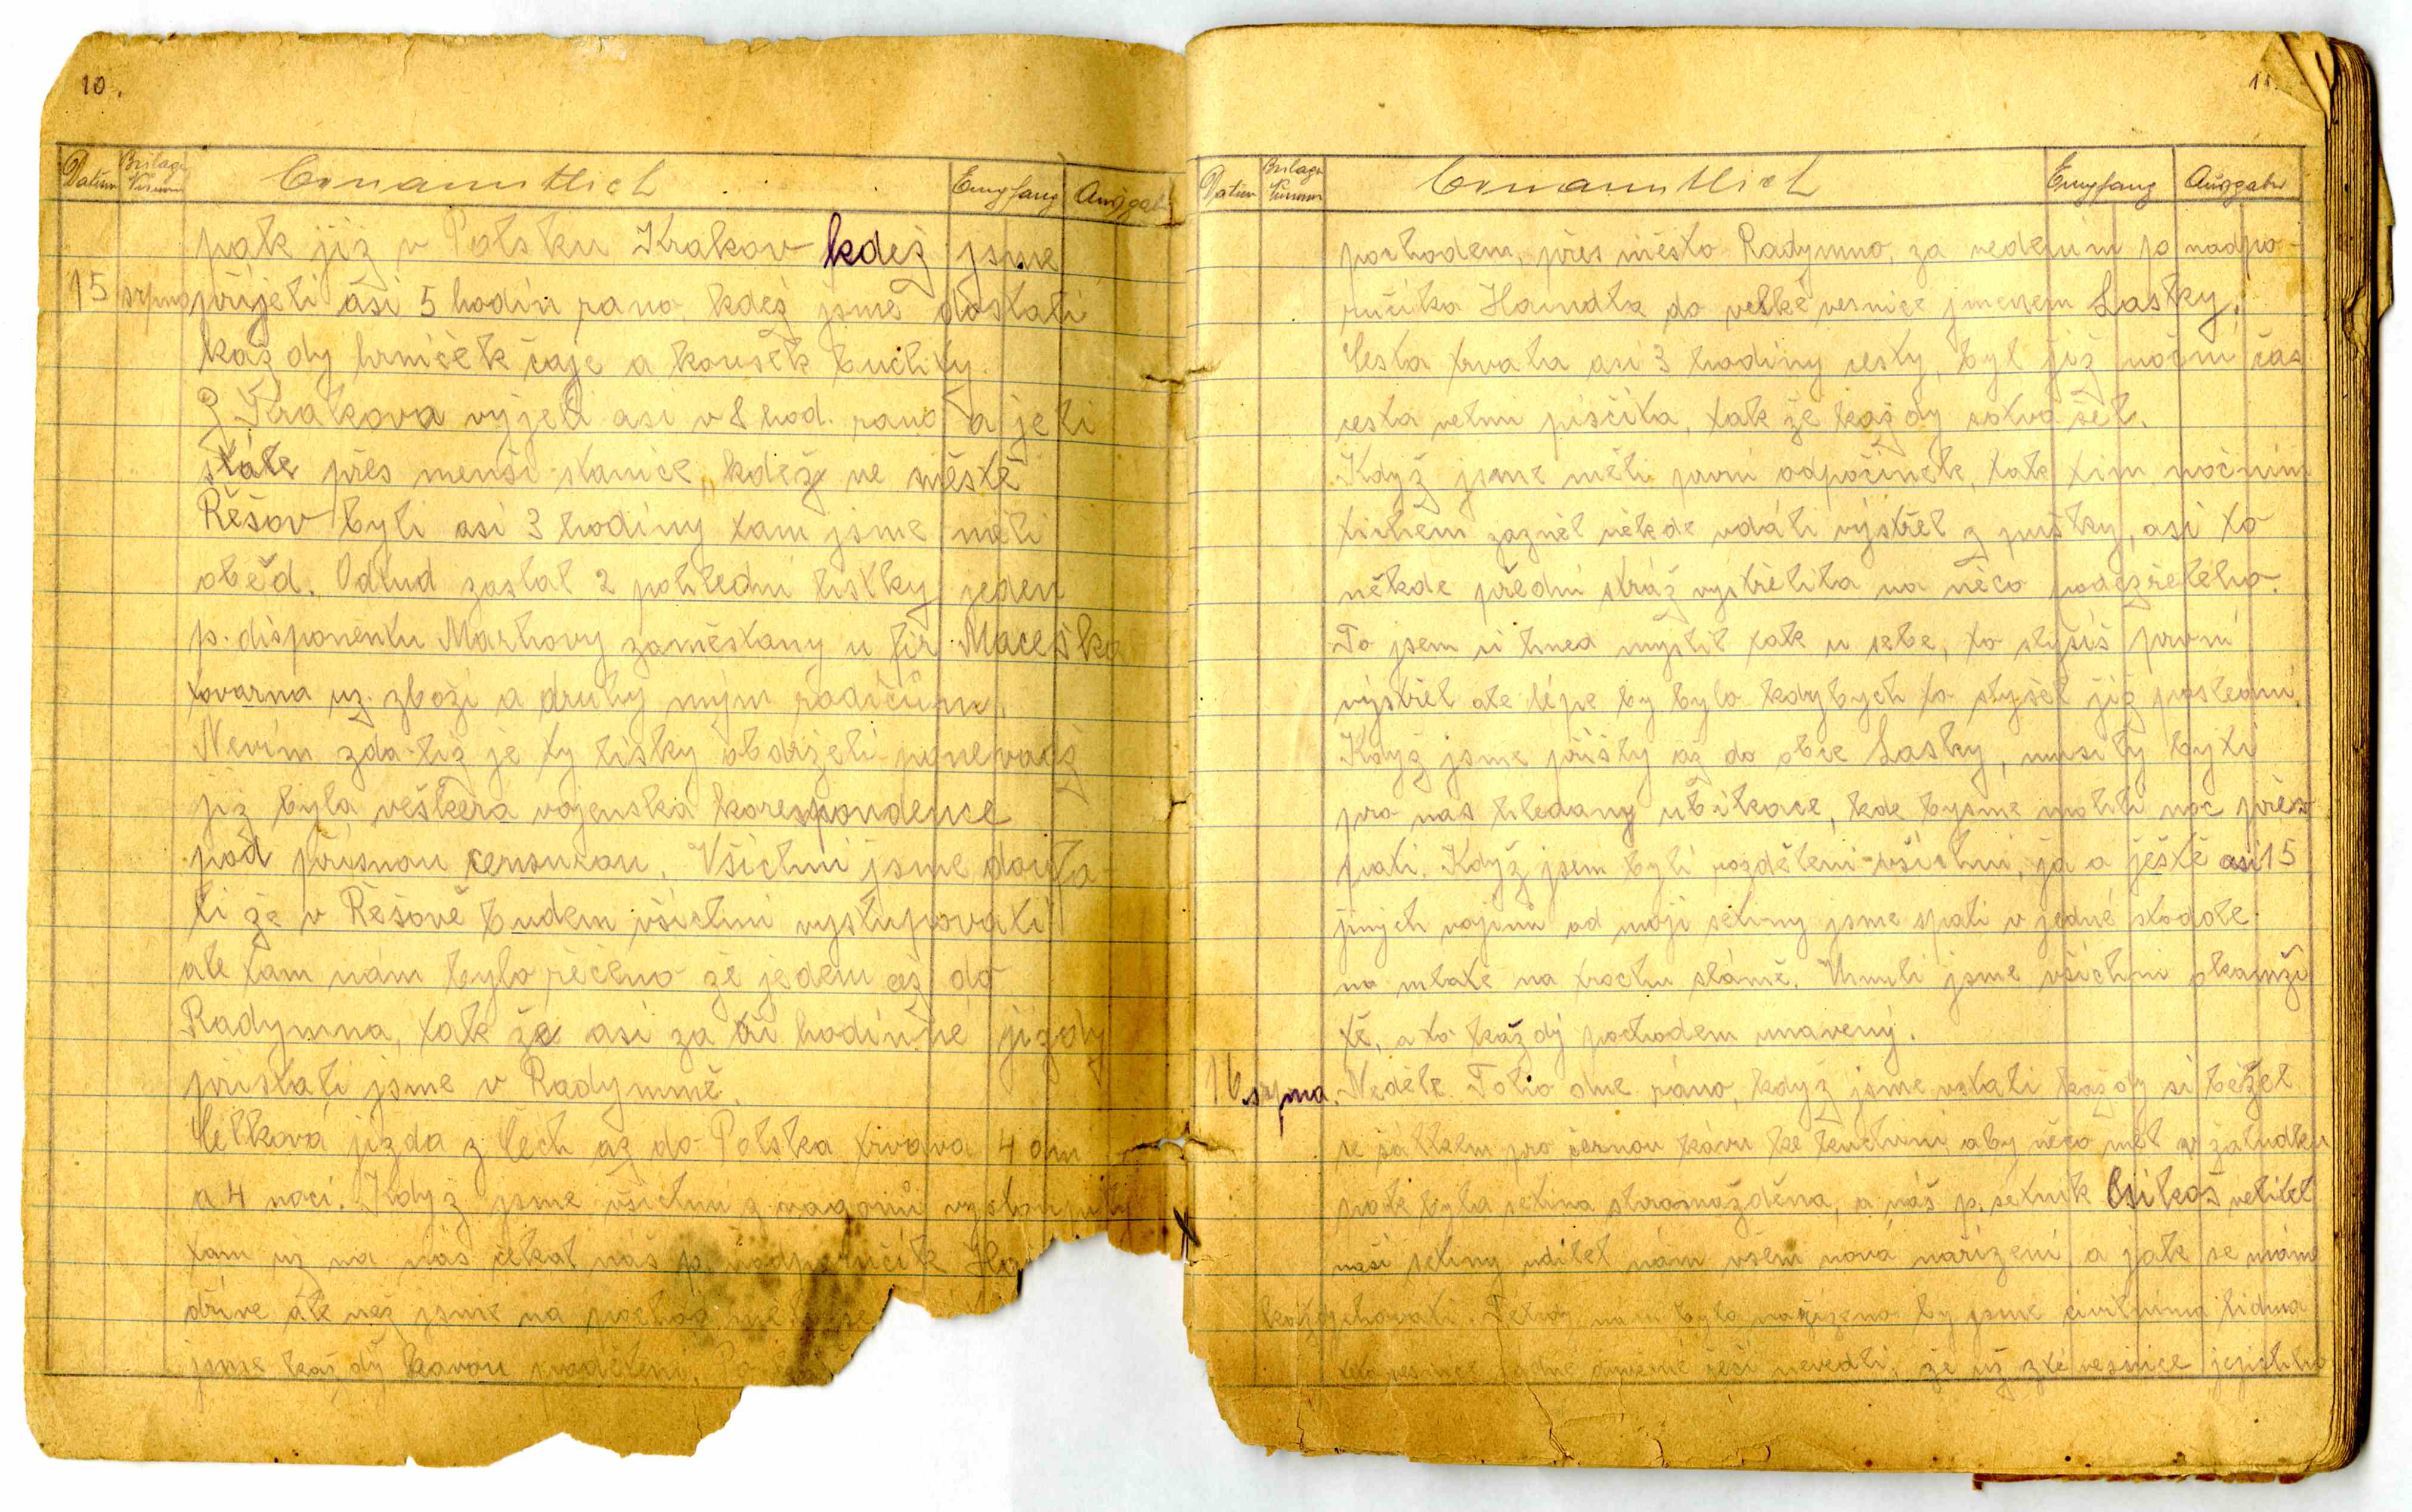 10.
Datum Beilage Numm Empfang Ausgabe
pak již v Polsku Krakov kdež jsme
15 srpna přijeli asi 5 hodin rano, kdež jsme dostali
každy hrniček čaje a kousek buchty.
Z Krakova vyjeli asi v 8 hod. rano a jeli
stále přes menši stanice, kdež ve městě
Řešov byli asi 3 hodiny tam jsme měli
oběd. Odtud zaslal 2 pohledni listky jeden
p. disponentu Marhovy zaměstany u fir. Maceška
tovarna uz. zboži a druhy mým rodičům.
Nevím zda-liž je ty lisky obdrželi poněvadž
již byla veškera vojenska korespondence
pod přisnou censurou. Všichni jsme doufa-
li že v Řešově budem všichni vystupovati
ale tam nám bylo řečeno že jedem až do
Radymna, tak že asi za tři hodinné jizdy
přistali jsme v Radymně.
Celková jizda z Čech až do Polska trvava 4 dni
a 4 noci. Když jsme všichni z vagonů vystoupily
tam už na nás čekal náš p. nadporučik Ha
dřive ale než jsme na pochod
jsme každý kavou poděleni. Po
11.
Datum Beilage Numm Empfang Ausgabe
pochodem, přes město Radymno, za vedenim p. nadpo-
ručika Haindla do velké vesnice jmenem Lasky.
Cesta trvala asi 3 hodiny cesty, byl již nočni čas
cesta velmi pisčita, tak že každy sotva šel.
Když jsme měli prvni odpočinek, tak tim nočnim
tichem zazněl někde vdáli výstřel z pušky, asi to
někde předni stráž vystřelila na něco podezřelého.
To jsem si hned myslil tak u sebe, to slyšiš první
výstřel ale lépe by bylo kdybych to slyšel již posledni.
Když jsme přišly až do obce Lasky, musily byti
pro nas hledany ubikace, kde bysme mohli noc přes
spati. Když jsem byli rozděleni všichni, ja a ještě asi 15
jinych vojinů od moji setiny jsme spali v jedné stodole
na mlatě na trochu slámě. Usnuli jsme všichni okamži
tě, a to každý pochodem unavený.
16. srpna. Neděle. Toho dne ráno, když jsme vstali každy si běžel
se šálkem pro černou kávu ke kuchyni, aby něco měl v žaludku
pak byla setina shromažděna, a náš p. setnik Csikoš velitel
naši setiny udilel nám všem nová nařizeni a jak se máme
každy chovati. Tehdy nám bylo nařizeno by jsme civilnima lidma
této vesnice žadné duverné řeči nevedli, že už z té vesnice jejich